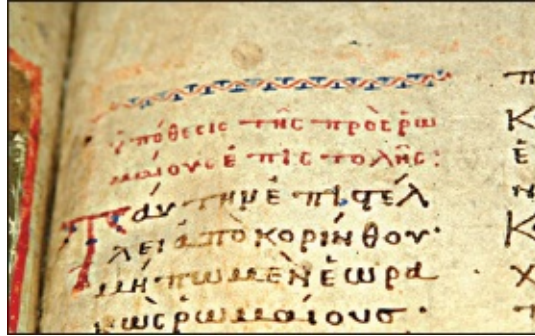 ὑπόθεσις τῆς πρὸς ῥω
μαίους ἐπιστολῆς:
Ταύτην ἐπιστέλ
λει ἀπὸ κορίνθου·
μήπω μὲν ἑωρα
κὼς ῥωμαίους·